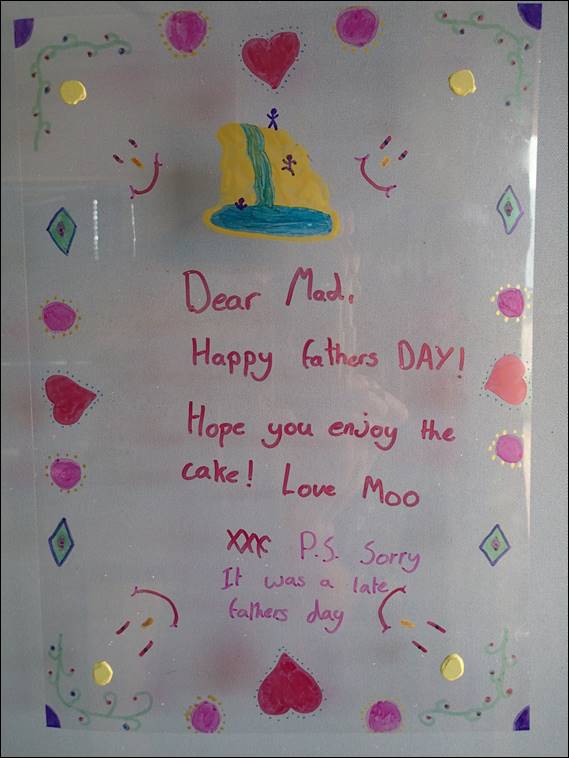 Dear Mad,
Happy fathers DAY!
Hope you enjoy the
cake! Love Moo
xxx P.S. Sorry
It was a late
fathers day